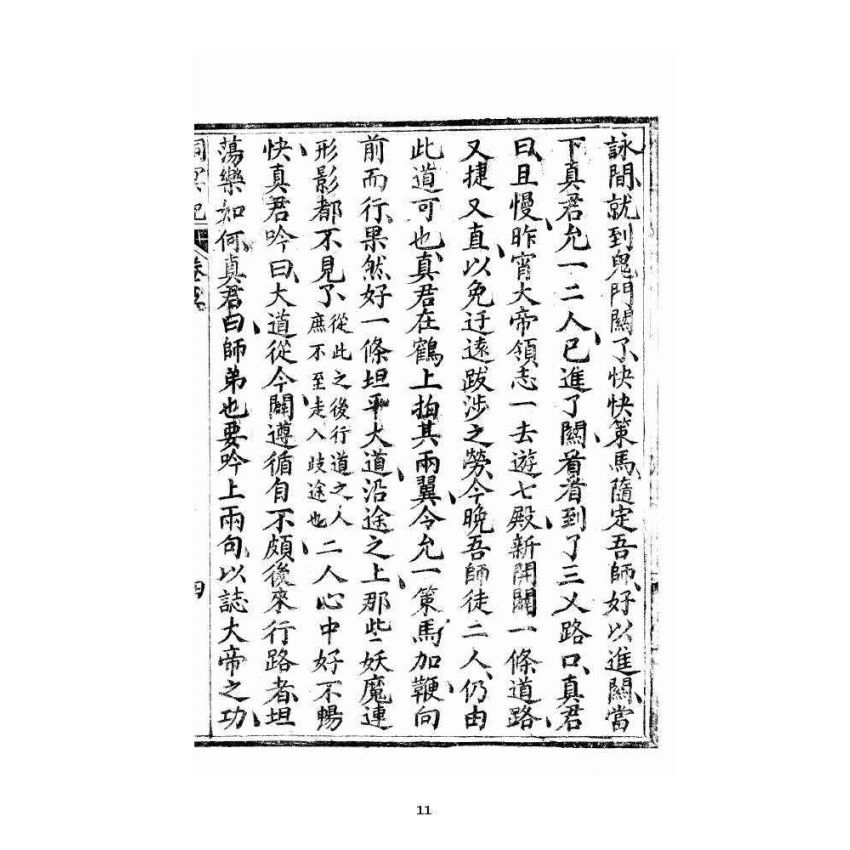 詠間、就到鬼門關了、快快策馬隨定吾師、好以進關、當
下真君允一二人、已進了關、看看到了三乂路口、真君
曰、且慢、昨宵大帝領志一去遊七殿、新開闢一條道路、
又捷又直、以免迂遠跋涉之勞、今晚吾師徒二人、仍由
此道可也、真君在鶴上拍其兩翼、令允一策馬加鞭、向
前而行、果然好一條坦平大道、沿途之上、那些妖魔連
形影都不見了、從此之後行道之人庶不至走入歧途也、二人心中好不暢
快、真君吟曰、大道從今闢、遵循自不頗、後來行路者、坦
蕩樂如何、真君曰、師弟也要吟上兩句、以誌大帝之功、
洞冥記 卷
四
11